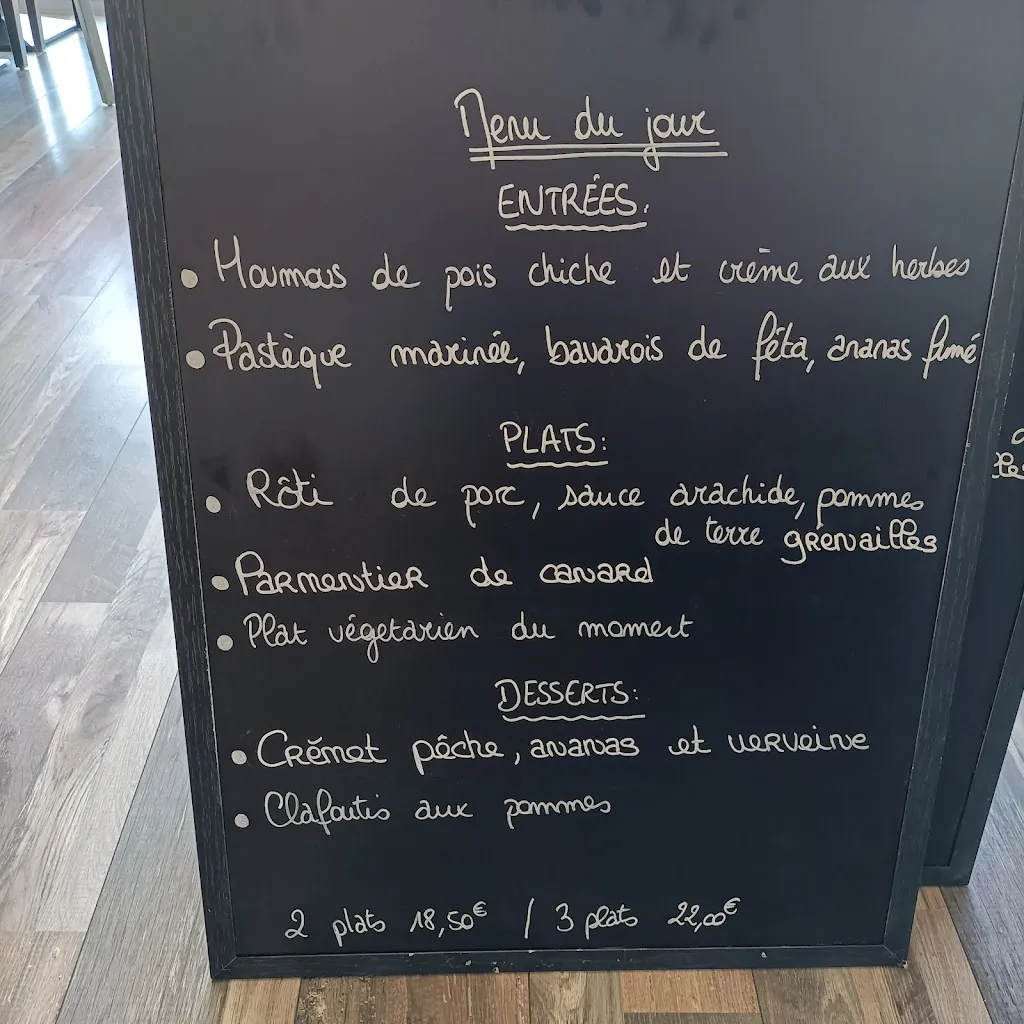 Menu du jour
ENTRÉES:
• Houmous de pois chiche et crème aux herbes
• Pastèque marinée, bavarois de féta, ananas fumé
PLATS:
• Rôti de porc, sauce arachide, pommes
de terre grenailles
• Parmentier de canard
• Plat végetarien du moment
DESSERTS:
• Crémet pêche, ananas et verveine
• Clafoutis aux pommes
2 plats 18,50€ / 3 plats 22,00€